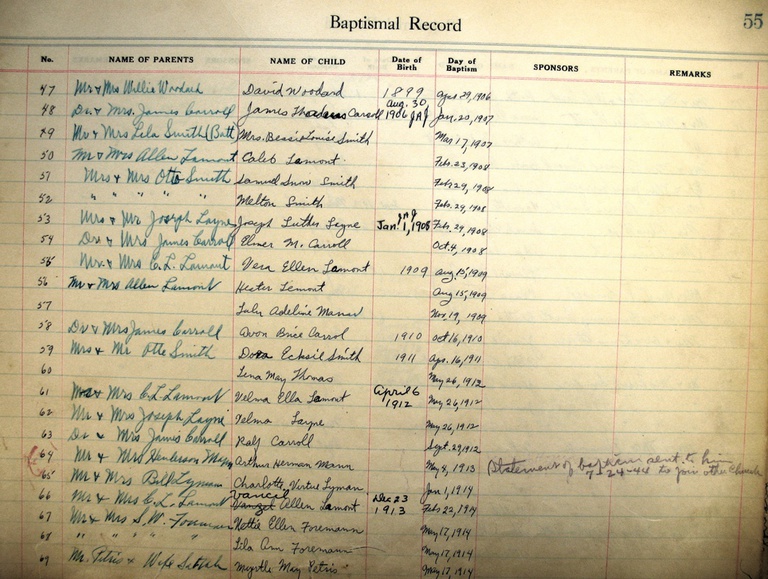 Baptismal Record
55
No. NAME OF PARENTS NAME OF CHILD Date of Birth Day of Baptism SPONSORS REMARKS
47 Mr & Mrs Willie Woodard David Woodard 1899 Apr 29, 1906
48 Dr. & Mrs. James Carroll James Carroll Aug. 30, 1906 Jan. 20, 1907
49 Mr & Mrs Lela Smith (Batt) Mrs. Bessie Louise Smith Mar 17, 1907
50 Mr & Mrs Allen Lamont Caleb Lamont Feb. 23, 1908
51 Mrs & Mrs Otto Smith Samuel Snow Smith Feb 29, 1908
52 " " " " Melton Smith Feb. 29, 1908
53 Mrs & Mr Joseph Layne Joseph Luther Layne Jan. 1, 1908 Feb. 29, 1908
54 Dr. & Mrs. James Carroll Elmer M. Carroll Oct. 4, 1908
55 Mr. & Mrs C. L. Lamont Vera Ellen Lamont 1909 Aug. 15, 1909
56 Mr & Mrs Allen Lamont Hester Lemont Aug 15, 1909
57 Lulu Adeline Nov. 19, 1909
58 Dr & Mrs James Carroll Avon Brice Carrol 1910 Oct 16, 1910
59 Mrs & Mr Otto Smith Dora Smith 1911 Apr. 16, 1911
60 Lena May Thomas May 26, 1912
61 Mr & Mrs C. L. Lamont Velma Ella Lamont April 6 1912 May 26, 1912
62 Mr & Mrs Joseph Layne Telma Layne May 26, 1912
63 Dr & Mrs James Carroll Ralf Carroll Sept. 29, 1912
64 Mr & Mrs Henderson Arthur Herman Mann May 4, 1913 Statement of baptism sent to him 7-24-44 to join other church
65 Mr & Mrs Bell Lyman Charlotte Virtue Lyman Jan 1, 1914
66 Mr & Mrs C. L. Lamont Allen Lamont Dec 23 1913 Feb 22, 1914
67 Mr & Mrs S. W. Foreman Nettie Ellen Foremann May 17, 1914
68 " " " " Lila Ann Foremann May 17, 1914
69 Mr. Tetris & Wife Myrtle May Petris May 17, 1914